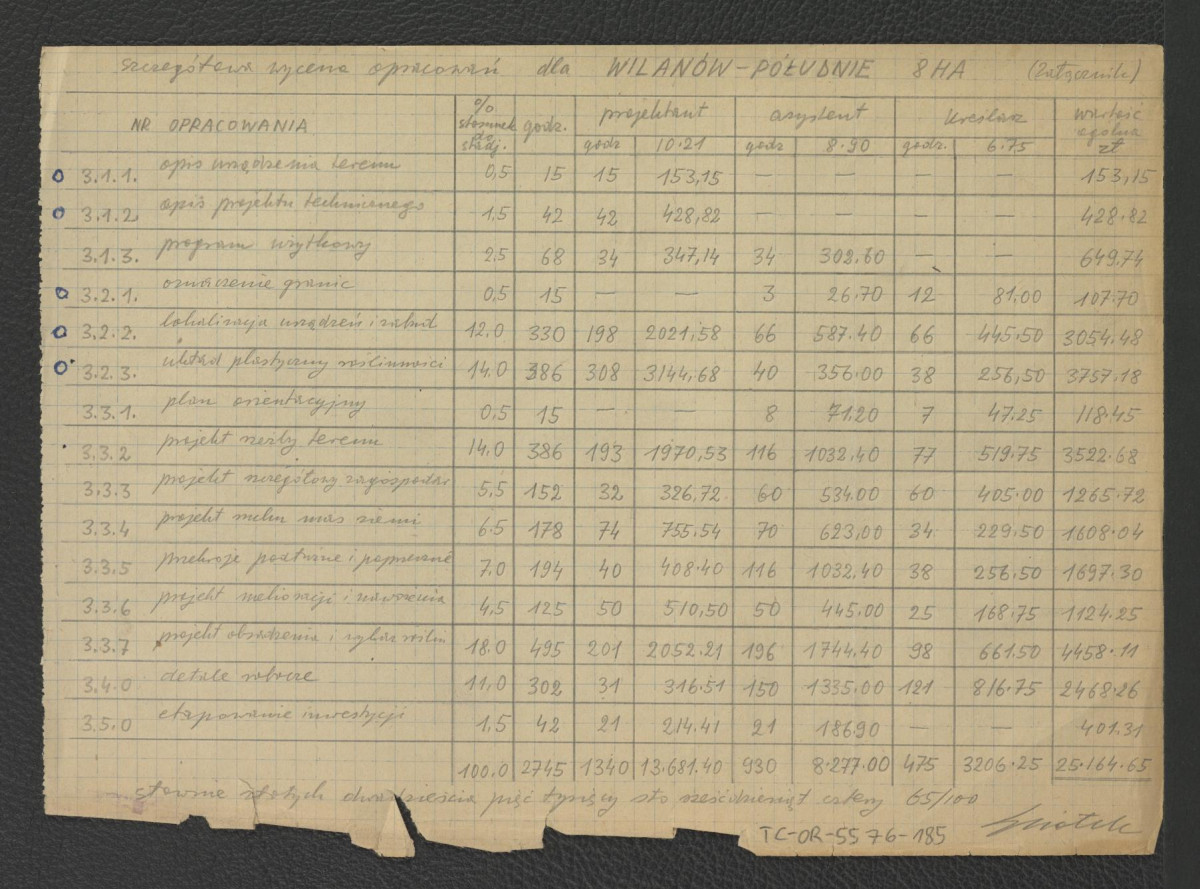 szczegółowa wycena opracowań dla WILANÓW-POŁUDNIE 8HA (załącznik)
NR OPRACOWANIA % stosunek do stadj. godz. projektant asystent kreślarz wartość ogólna zł
godz 10.21 godz 8.90 godz. 6.75
3.1.1. opis urządzenia terenu 0,5 15 15 153,15 — — — — 153,15
3.1.2. opis projektu technicznego 1,5 42 42 428,82 — — — — 428.82
3.1.3. program użytkowy 2,5 68 34 347,14 34 302.60 — — 649.74
3.2.1. oznaczenie granic 0,5 15 — — 3 26.70 12 81,00 107.70
3.2.2. lokalizacja urządzeń i zabud 12.0 330 198 2021,58 66 587.40 66 445,50 3054.48
3.2.3. układ plastyczny roślinności 14.0 386 308 3144,68 40 356.00 38 256,50 3757.18
3.3.1. plan orientacyjny 0,5 15 — — 8 71.20 7 47.25 118.45
3.3.2 projekt rzeźby terenu 14,0 386 193 1970,53 116 1032.40 77 519.75 3522.68
3.3.3 projekt szczegółowy zagospodar 5,5 152 32 326,72 60 534.00 60 405.00 1265.72
3.3.4 projekt ruchu mas ziemi 6.5 178 74 755.54 70 623,00 34 229.50 1608.04
3.3.5 przekroje podłużne i poprzeczne 7,0 194 40 408.40 116 1032,40 38 256.50 1697.30
3.3.6 projekt melioracji i nawożenia 4,5 125 50 510,50 50 445.00 25 168.75 1124.25
3.3.7 projekt obsadzenia i wykaz roślin 18.0 495 201 2052.21 196 1744.40 98 661.50 4458.11
3.4.0 detale robocze 11,0 302 31 316.51 150 1335.00 121 816.75 2468.26
3.5.0 etapowanie inwestycji 1,5 42 21 214.41 21 186.90 — — 401.31
100.0 2745 1340 13.681.40 930 8.277.00 475 3206.25 25.164.65
słownie złotych dwadzieścia pięć tysięcy sto sześćdziesiąt cztery 65/100
TC-OR-5576-185